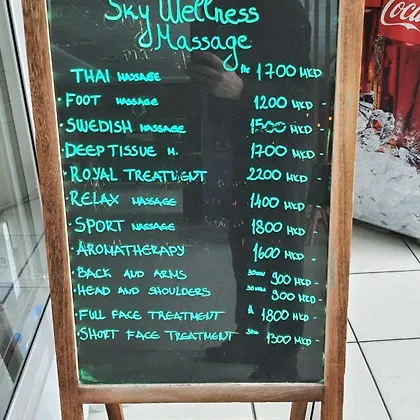 Sky Wellness
Massage
THAI MASSAGE 1hr 1700 MKD
· FOOT MASSAGE 1200 MKD -
· SWEDISH MASSAGE 1500 MKD -
· DEEP TISSUE M. 1700 MKD -
· ROYAL TREATMENT 2200 MKD -
· RELAX MASSAGE 1400 MKD -
· SPORT MASSAGE 1800 MKD -
· AROMATHERAPY 1600 MKD -
· BACK AND ARMS 30min 900 MKD -
· HEAD AND SHOULDERS 30min 900 MKD -
· FULL FACE TREATMENT 1800 MKD -
· SHORT FACE TREATMENT 1300 MKD -